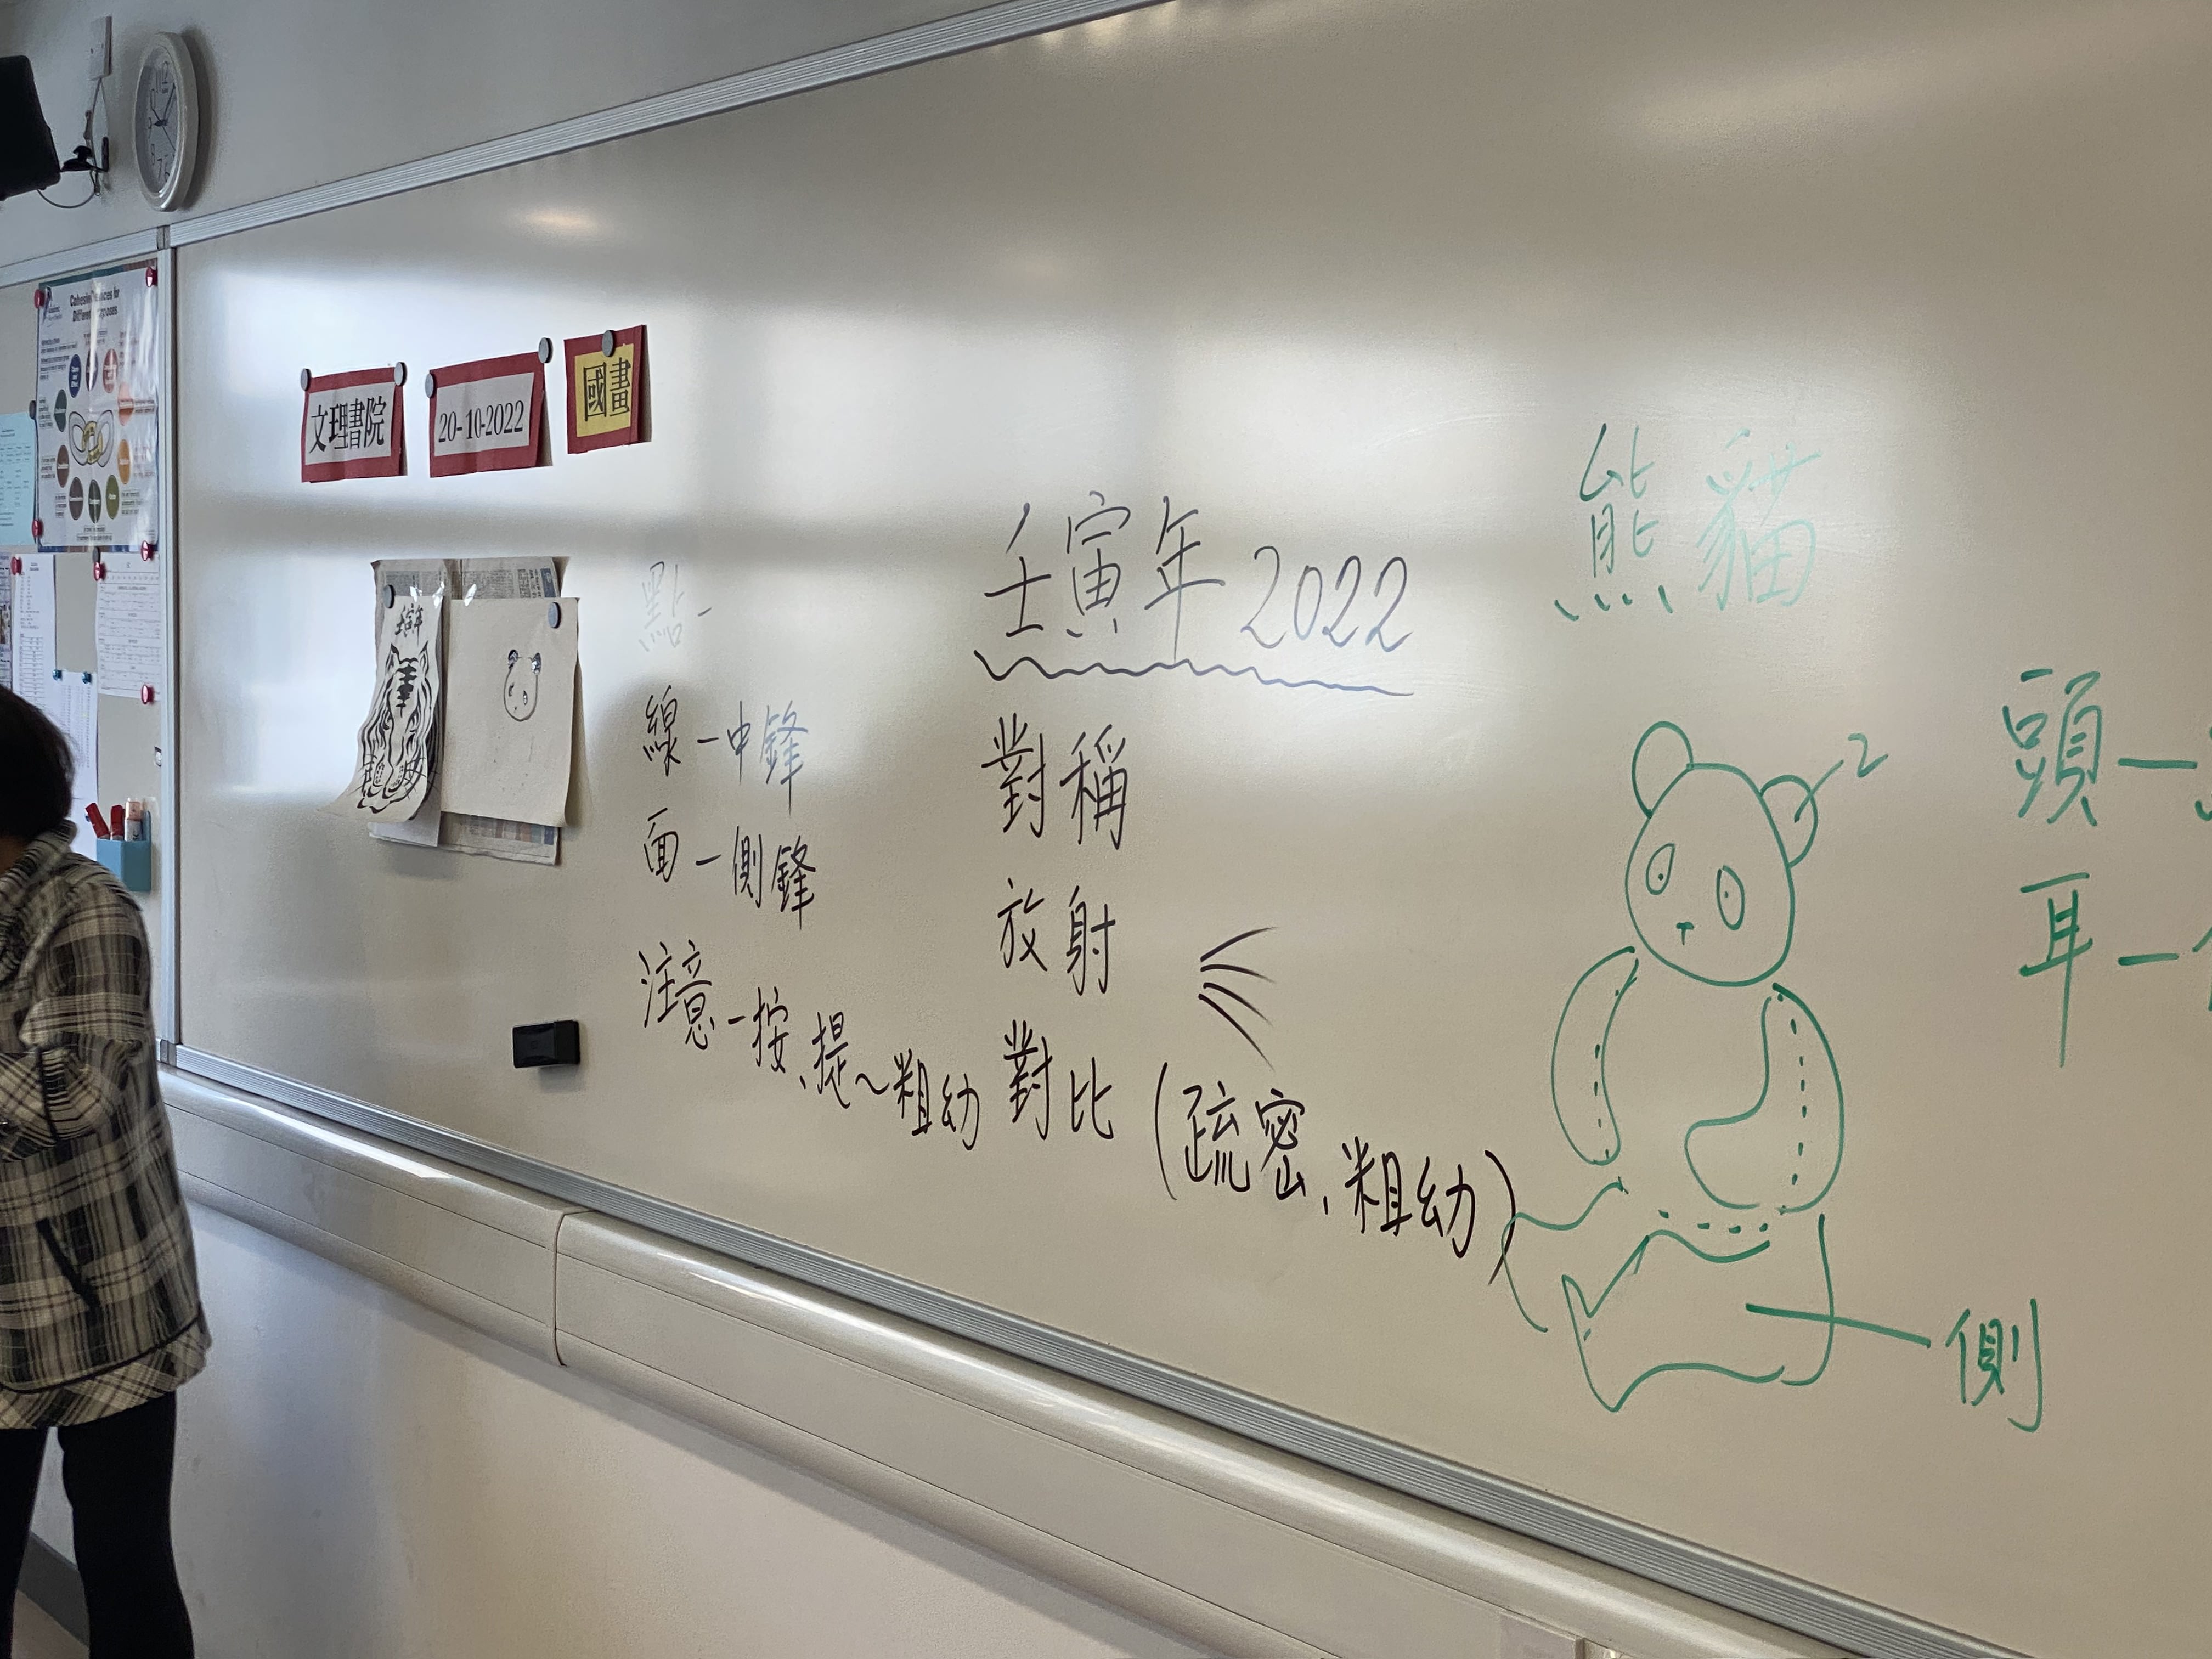 Cohesive Devices for
Different Purposes
文理書院
20-10-2022
國畫
壬寅年
點-
線-中鋒
面-側鋒
注意-按、提~粗幼
壬寅年 2022
對稱
放射
對比(疏密、粗幼)
熊貓
2
頭-
耳-
側